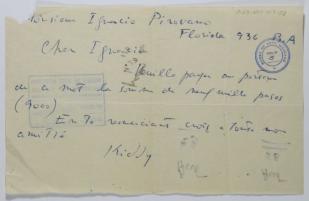 Monsieur Ignacio Pirovano
Florida 936 BsA
Cher Ignacio
Veuille payer au porteur
de ce mot la somme de neuf mille pesos
(9000)
En te remerciant, crois a toute mon
amitié
Kiddy